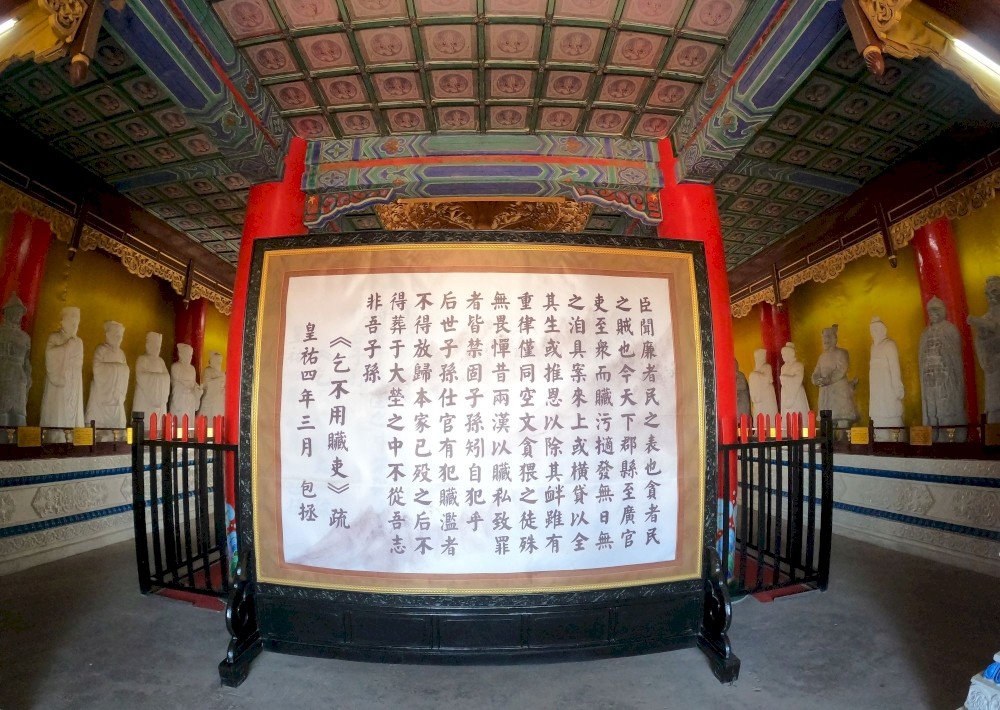 臣聞廉者民之表也貪者民
之賊也今天下郡縣至廣官
吏至衆而贓污擿發無日無
之洎具案來上或橫貸以全
其生或推恩以除其衅雖有
重律僅同空文貪猥之徒殊
無畏憚昔兩漢以贓私致罪
者皆禁固子孫矧自犯乎
后世子孫仕官有犯贓濫者
不得放歸本家已殁之后不
得葬于大塋之中不從吾志
非吾子孫
《乞不用贓吏》疏
皇祐四年三月 包拯